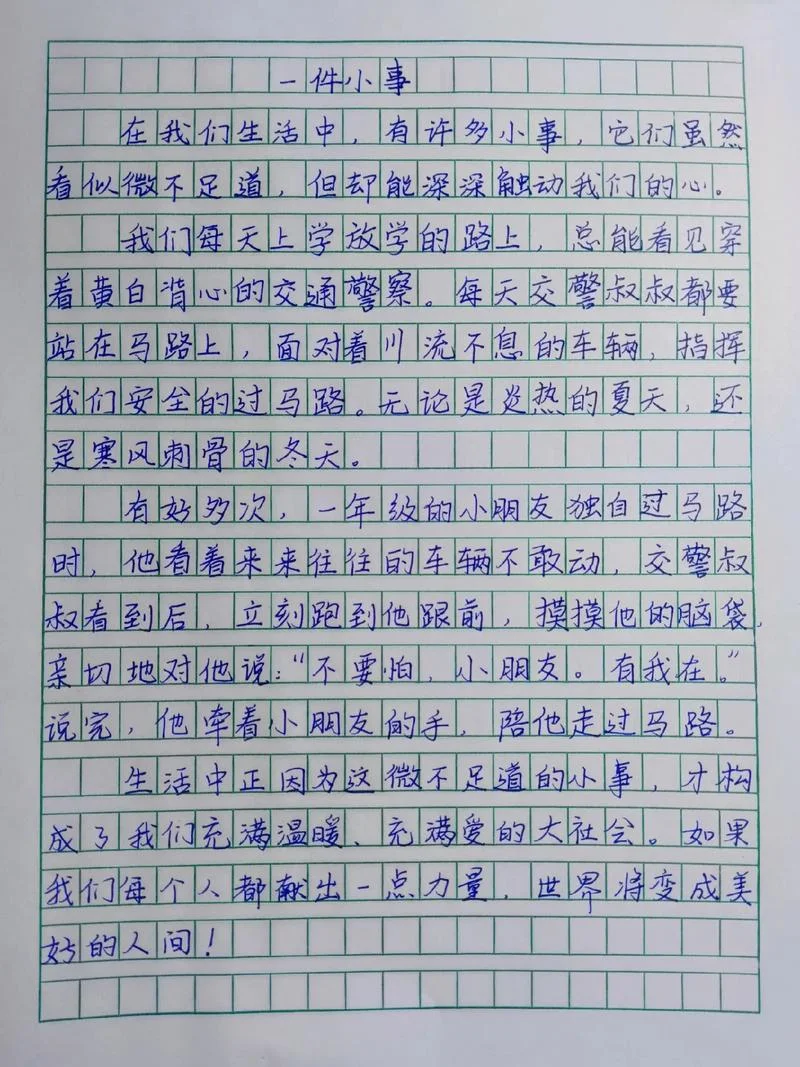 一件小事
在我们生活中，有许多小事，它们虽然
看似微不足道，但却能深深触动我们的心。
我们每天上学放学的路上，总能看见穿
着黄白背心的交通警察。每天交警叔叔都要
站在马路上，面对着川流不息的车辆，指挥
我们安全的过马路。无论是炎热的夏天，还
是寒风刺骨的冬天。
有好多次，一年级的小朋友独自过马路
时，他看着来来往往的车辆不敢动，交警叔
叔看到后，立刻跑到他跟前，摸摸他的脑袋，
亲切地对他说：“不要怕，小朋友。有我在。”
说完，他牵着小朋友的手，陪他走过马路。
生活中正因为这微不足道的小事，才构
成了我们充满温暖、充满爱的大社会。如果
我们每个人都献出一点力量，世界将变成美
好的人间！